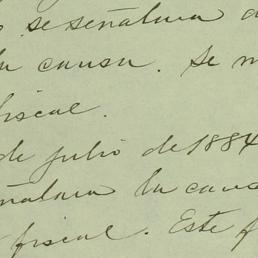 se señalara
la causa. Se
fiscal.
de julio de 1884
la
fiscal. Este